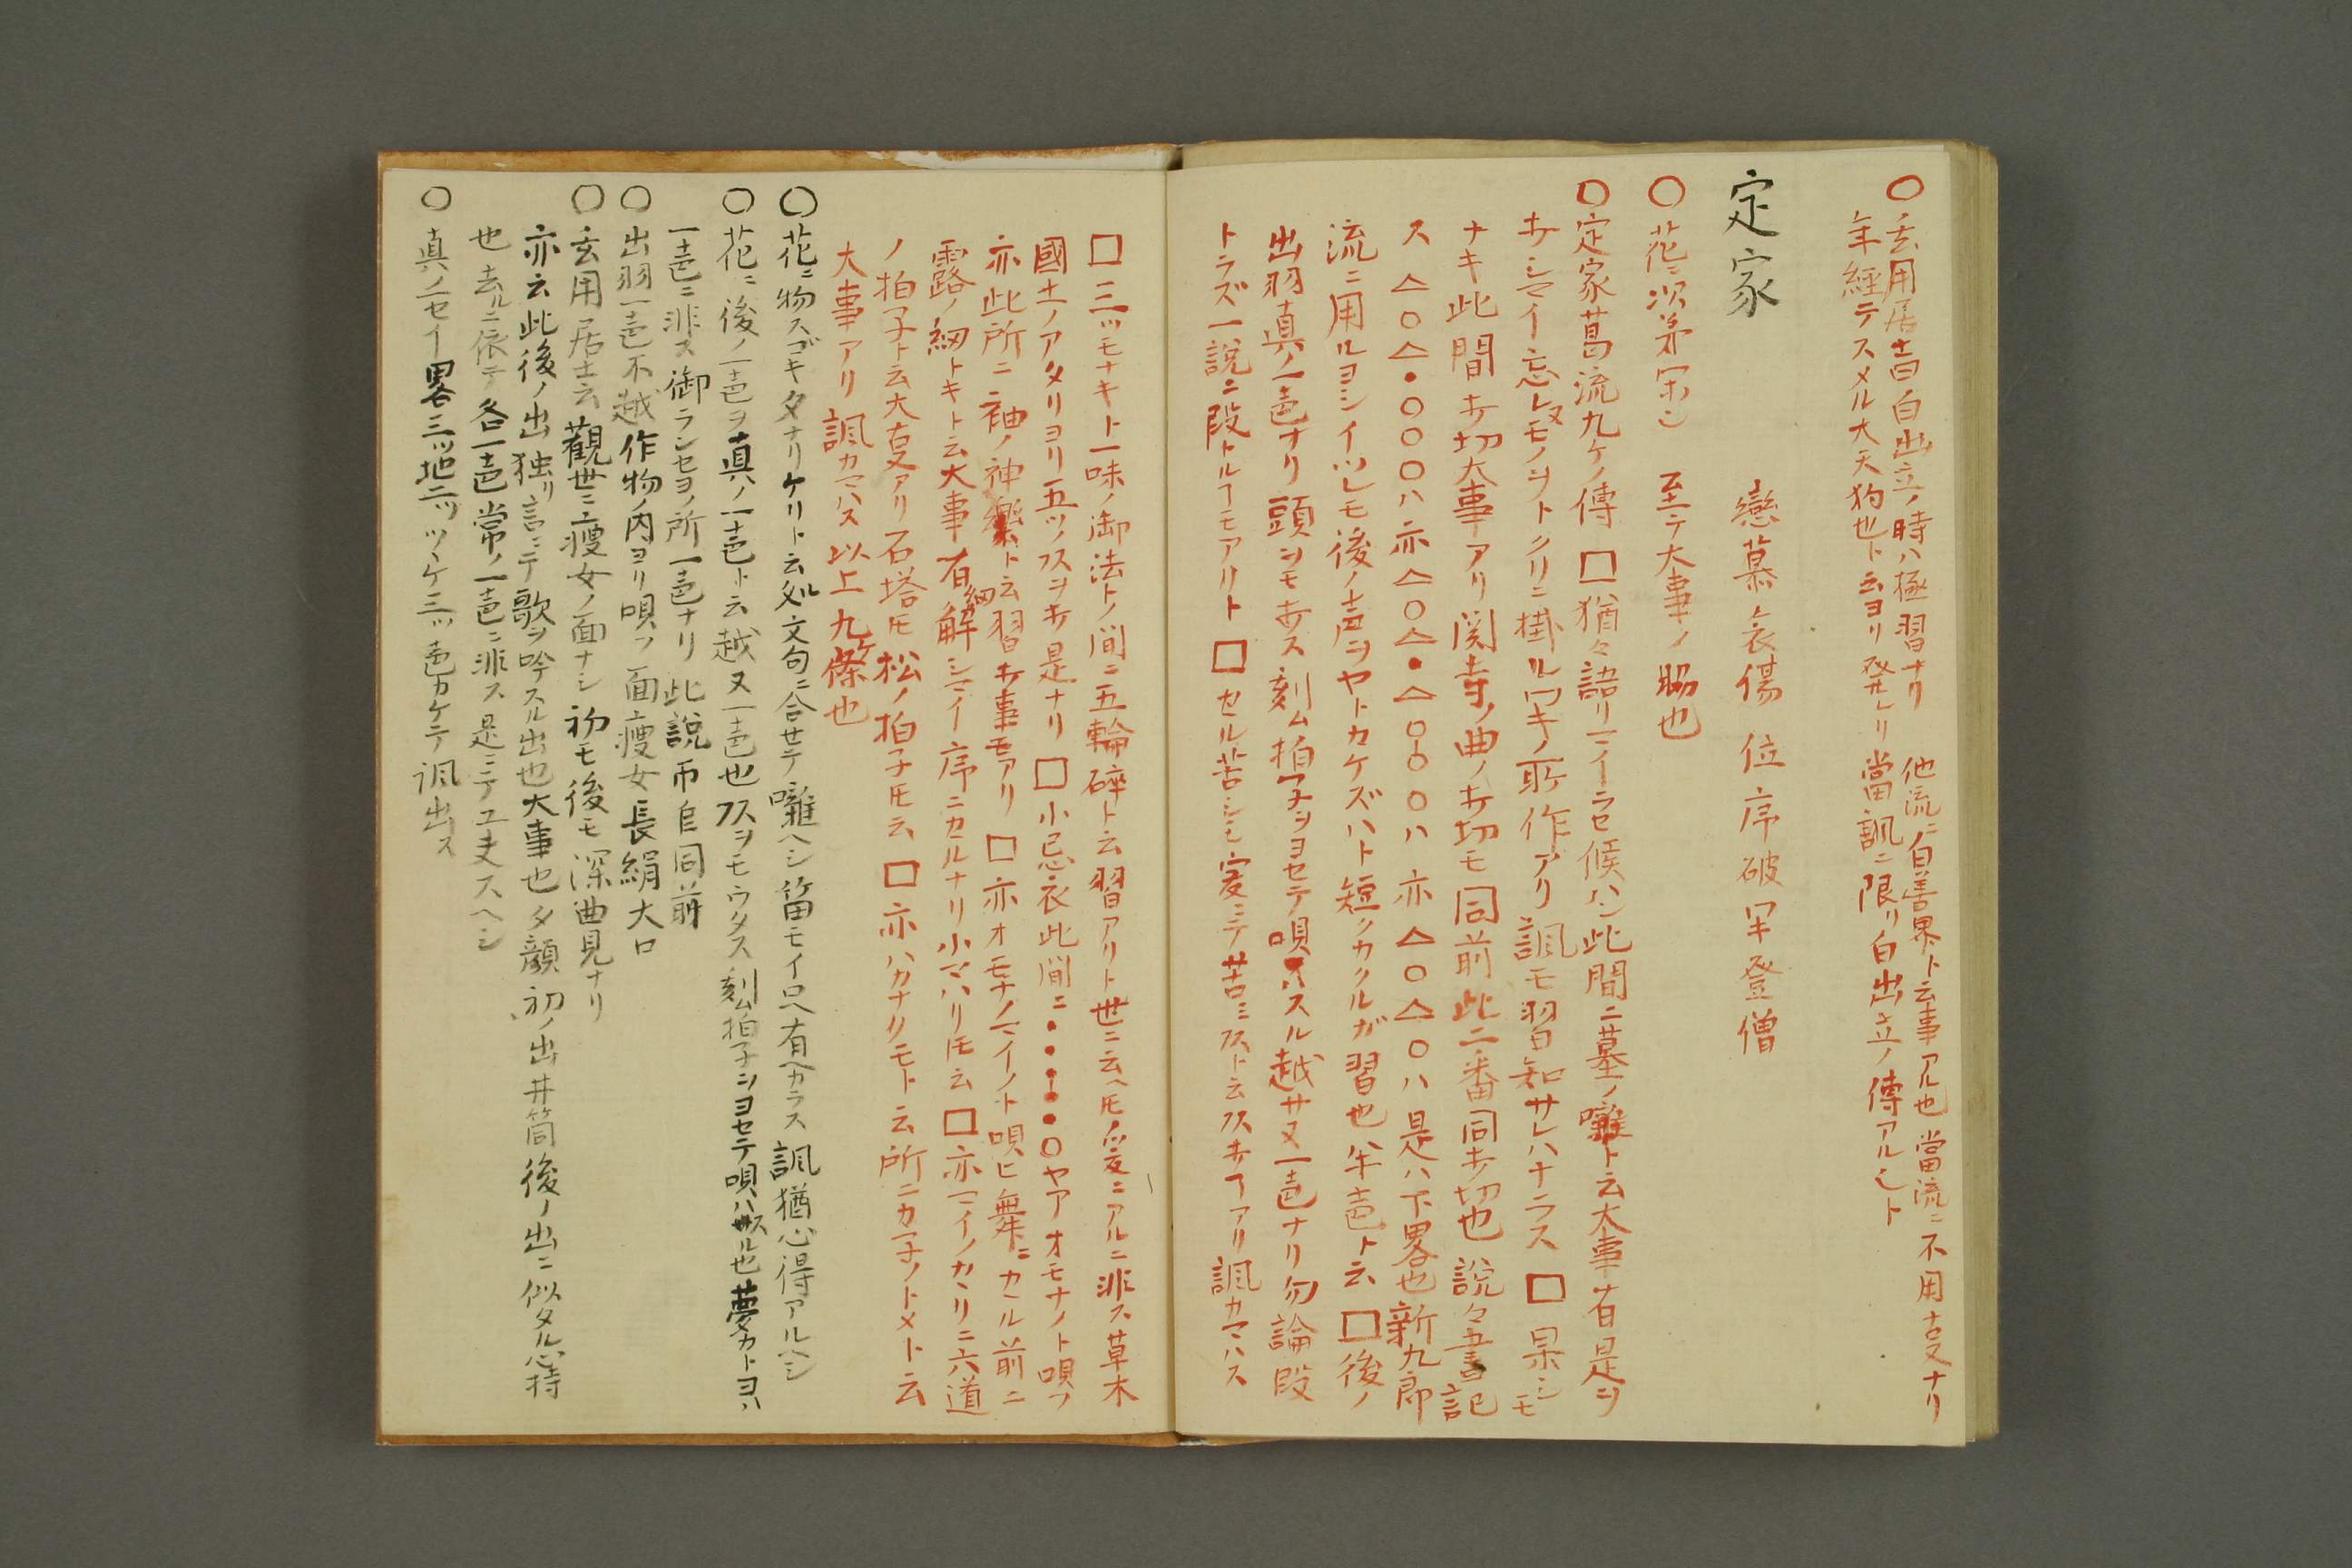 ○玄用居士曰白出立ノ時ハ極習ナリ 他流ニ白善界ト云事アル也 當流ニ不用古又ナリ
年經テスメル大天狗也ト云ヨリ発レリ當諷ニ限リ白出立ノ傳アルト
定家 戀慕哀傷 位序破 登僧
○花ニ次第 至テ大事ノ 也
○定家葛流九ケノ傳 □猶々語リマイラセ候ハン此間ニ墓ノ囃ト云大事有是ヲ
キシマイ忘レヌモノヲトクリニ掛ルワキノ所作アリ諷モ習知サレハナラス □呆シモ
ナキ此間キ切大事アリ関寺ノ曲ノキ切モ同前此二番同キ切也 説々吾書記
ス △○△・○○○ハ亦△○△・△○○ ハ 亦△○△○ハ是ハ下畧也新九郎
流ニ用ルヨシイツレモ後ノ声ヲヤトカケズハト短クカクルガ習也 半壱ト云 □後ノ
出羽真ノ一壱ナリ 頭ヲモキス刻ム拍子ヲヨセテ唄ハスル越サヌ一壱ナリ勿論段
トラズ一説ニ段トルヿモアリト □セル苦シモ 爰ニテ苦ミヌト云 キヿアリ諷カマハス
□三ツモナキト一味ノ御法トノ間ニ五輪碎ト云習アリト世ニ云ヘ 爰ニアルニ非ス草木
國土ノアタリヨリ五ツ ヲキ是ナリ □小忌衣此間ニ・・・・・○ヤアオモナノト唄フ
亦此所ニ袖ノ神樂ト云習キ事モアリ □亦オモナノマイノト唄ヒ舞ニカル前ニ
露ノ紐トキト云大事有解シマイ序ニカルナリ小マハリ 云 □亦マイノカヽリニ六道
ノ拍子ト云大古又アリ石塔 松ノ拍子 云 □亦ハカナクモト云所ニカ子ノトメト云
大事アリ諷カマハス以上九ケ條也
○花ニ物スゴキ夕ナリケリト云処ル文句ニ合セテ囃ヘシ笛モイロヘ有ヘカラス 諷猶心得アルヘシ
○花ニ後ノ一壱ヲ真ノ一壱ト云越ヌ一壱也 ヲモウタス刻ム拍子ヲヨセテ唄ハスル也夢カトヨハ
一壱ニ非ス御ランセヨノ所一壱ナリ此説 自同前
○出羽一壱不越作物ノ内ヨリ唄フ 面瘦女長絹大口
○玄用居士云觀世ニ瘦女ノ面ナシ 初モ後モ深曲見ナリ
亦云此後ノ出独リ言ニテ歌ヲ吟スル出也大事也夕顔初ノ出井筒後ノ出ニ似タル心持
也去ルニ依テ各一壱常ノ一壱ニ非ス是ニテ工夫スヘシ
○真ノ一セイ畧三ツ地二ツツヽケ三ツ壱カケテ諷出ス